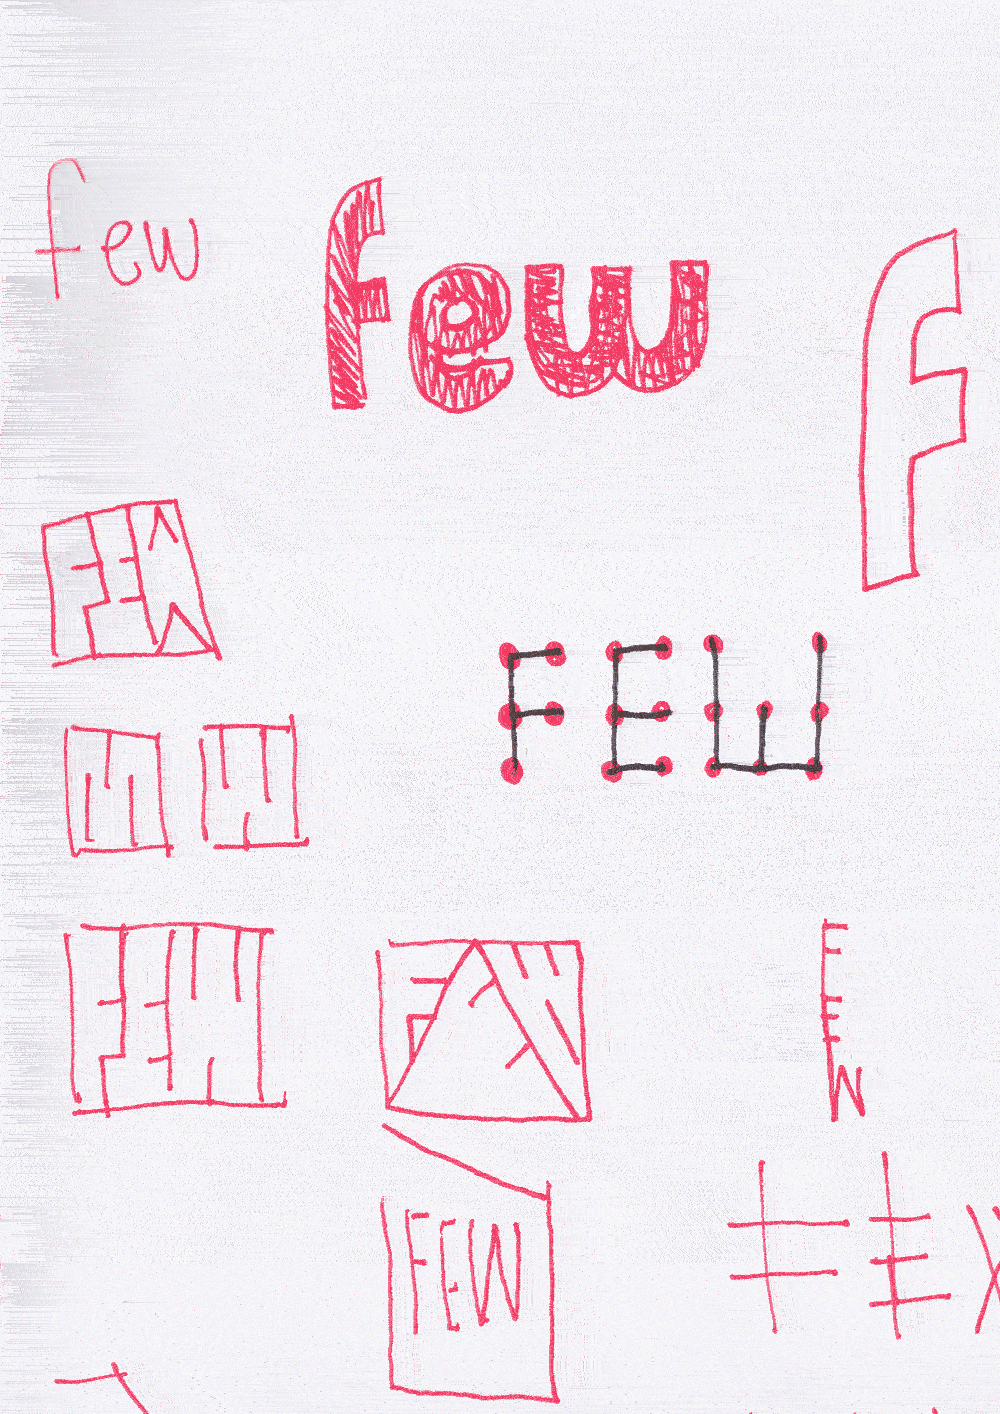 few
few
f
FEW
FEW
FEW
FEW
FEW
FEW